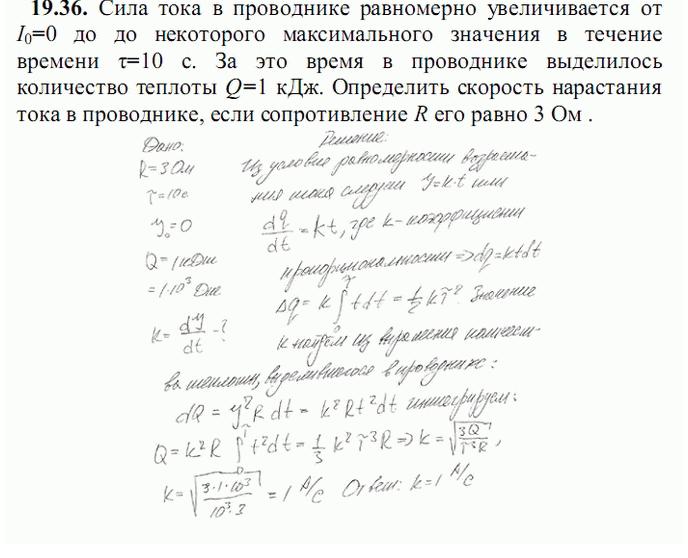 19.36. Сила тока в проводнике равномерно увеличивается от
I₀=0 до до некоторого максимального значения в течение
времени τ=10 с. За это время в проводнике выделилось
количество теплоты Q=1 кДж. Определить скорость нарастания
тока в проводнике, если сопротивление R его равно 3 Ом .
Дано:
R=3 Ом
τ=10 с
J₀=0
Q=1 кДж
=1·10³ Дж
k= dJ/dt -?
Решение:
Из условия равномерности возраста-
ния тока следует J=k·t или
dq/dt = kt, где k-коэффициент
пропорциональности => dq=ktdt
Δq= k ∫₀^τ tdt = 1/2 kτ². Значение
k найдем из выражения количест-
ва теплоты, выделившегося в проводнике:
dQ = J²R dt = k²Rt²dt интегрируем:
Q=k²R ∫₀^τ t²dt = 1/3 k²τ³R => k=√(3Q/τ³R),
k=√(3·1·10³/10³·3) = 1 А/с Ответ: k=1 А/с